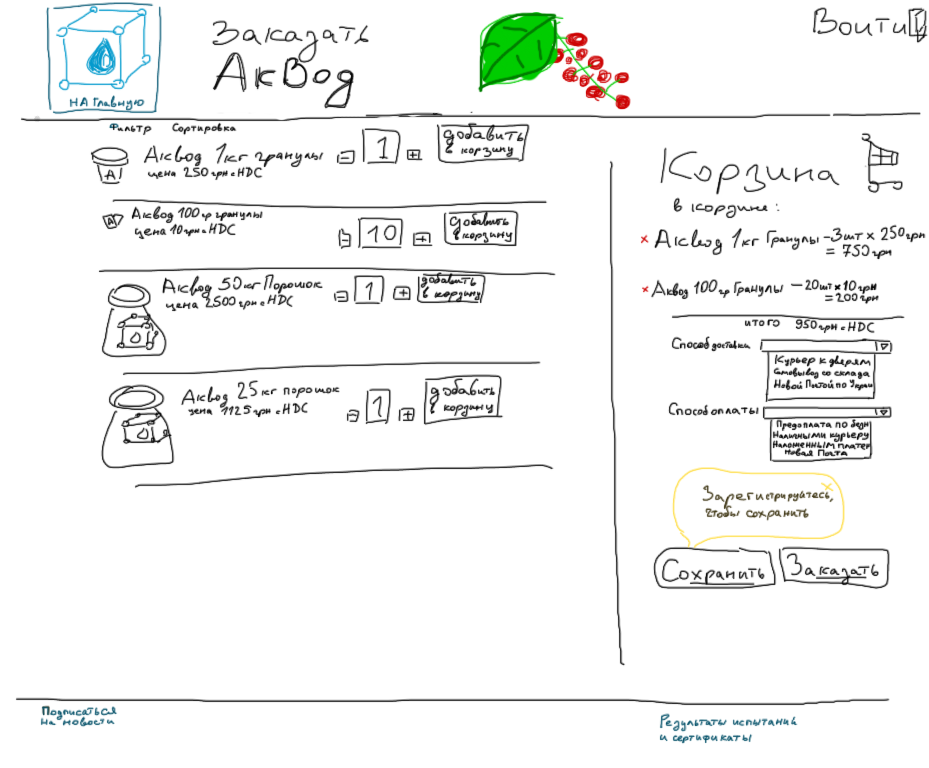 Заказать
АкВод
Войти
НА Главную
Фильтр Сортировка
Аквод 1кг гранулы
цена 250 грн с НДС
1
добавить
в корзину
А
Аквод 100 гр гранулы
цена 10 грн с НДС
10
добавить
в корзину
Аквод 50 кг Порошок
цена 2500 грн с НДС
1
добавить
в корзину
Аквод 25 кг порошок
цена 1125 грн с НДС
1
добавить
в корзину
Корзина
в корзине:
× Аквод 1кг Гранулы – 3шт × 250грн
= 750 грн
× Аквод 100 гр Гранулы – 20шт × 10 грн
= 200 грн
итого 950 грн с НДС
Способ доставки
Курьер к дверям
Самовывоз со склада
Новой Почтой по Украи
Способ оплаты
Предоплата по безн
Наличными курьеру
Наложенным платеж
Новая Почта
Зарегистрируйтесь,
чтобы сохранить
×
Сохранить
Заказать
Подписаться
на новости
Результаты испытаний
и сертификаты